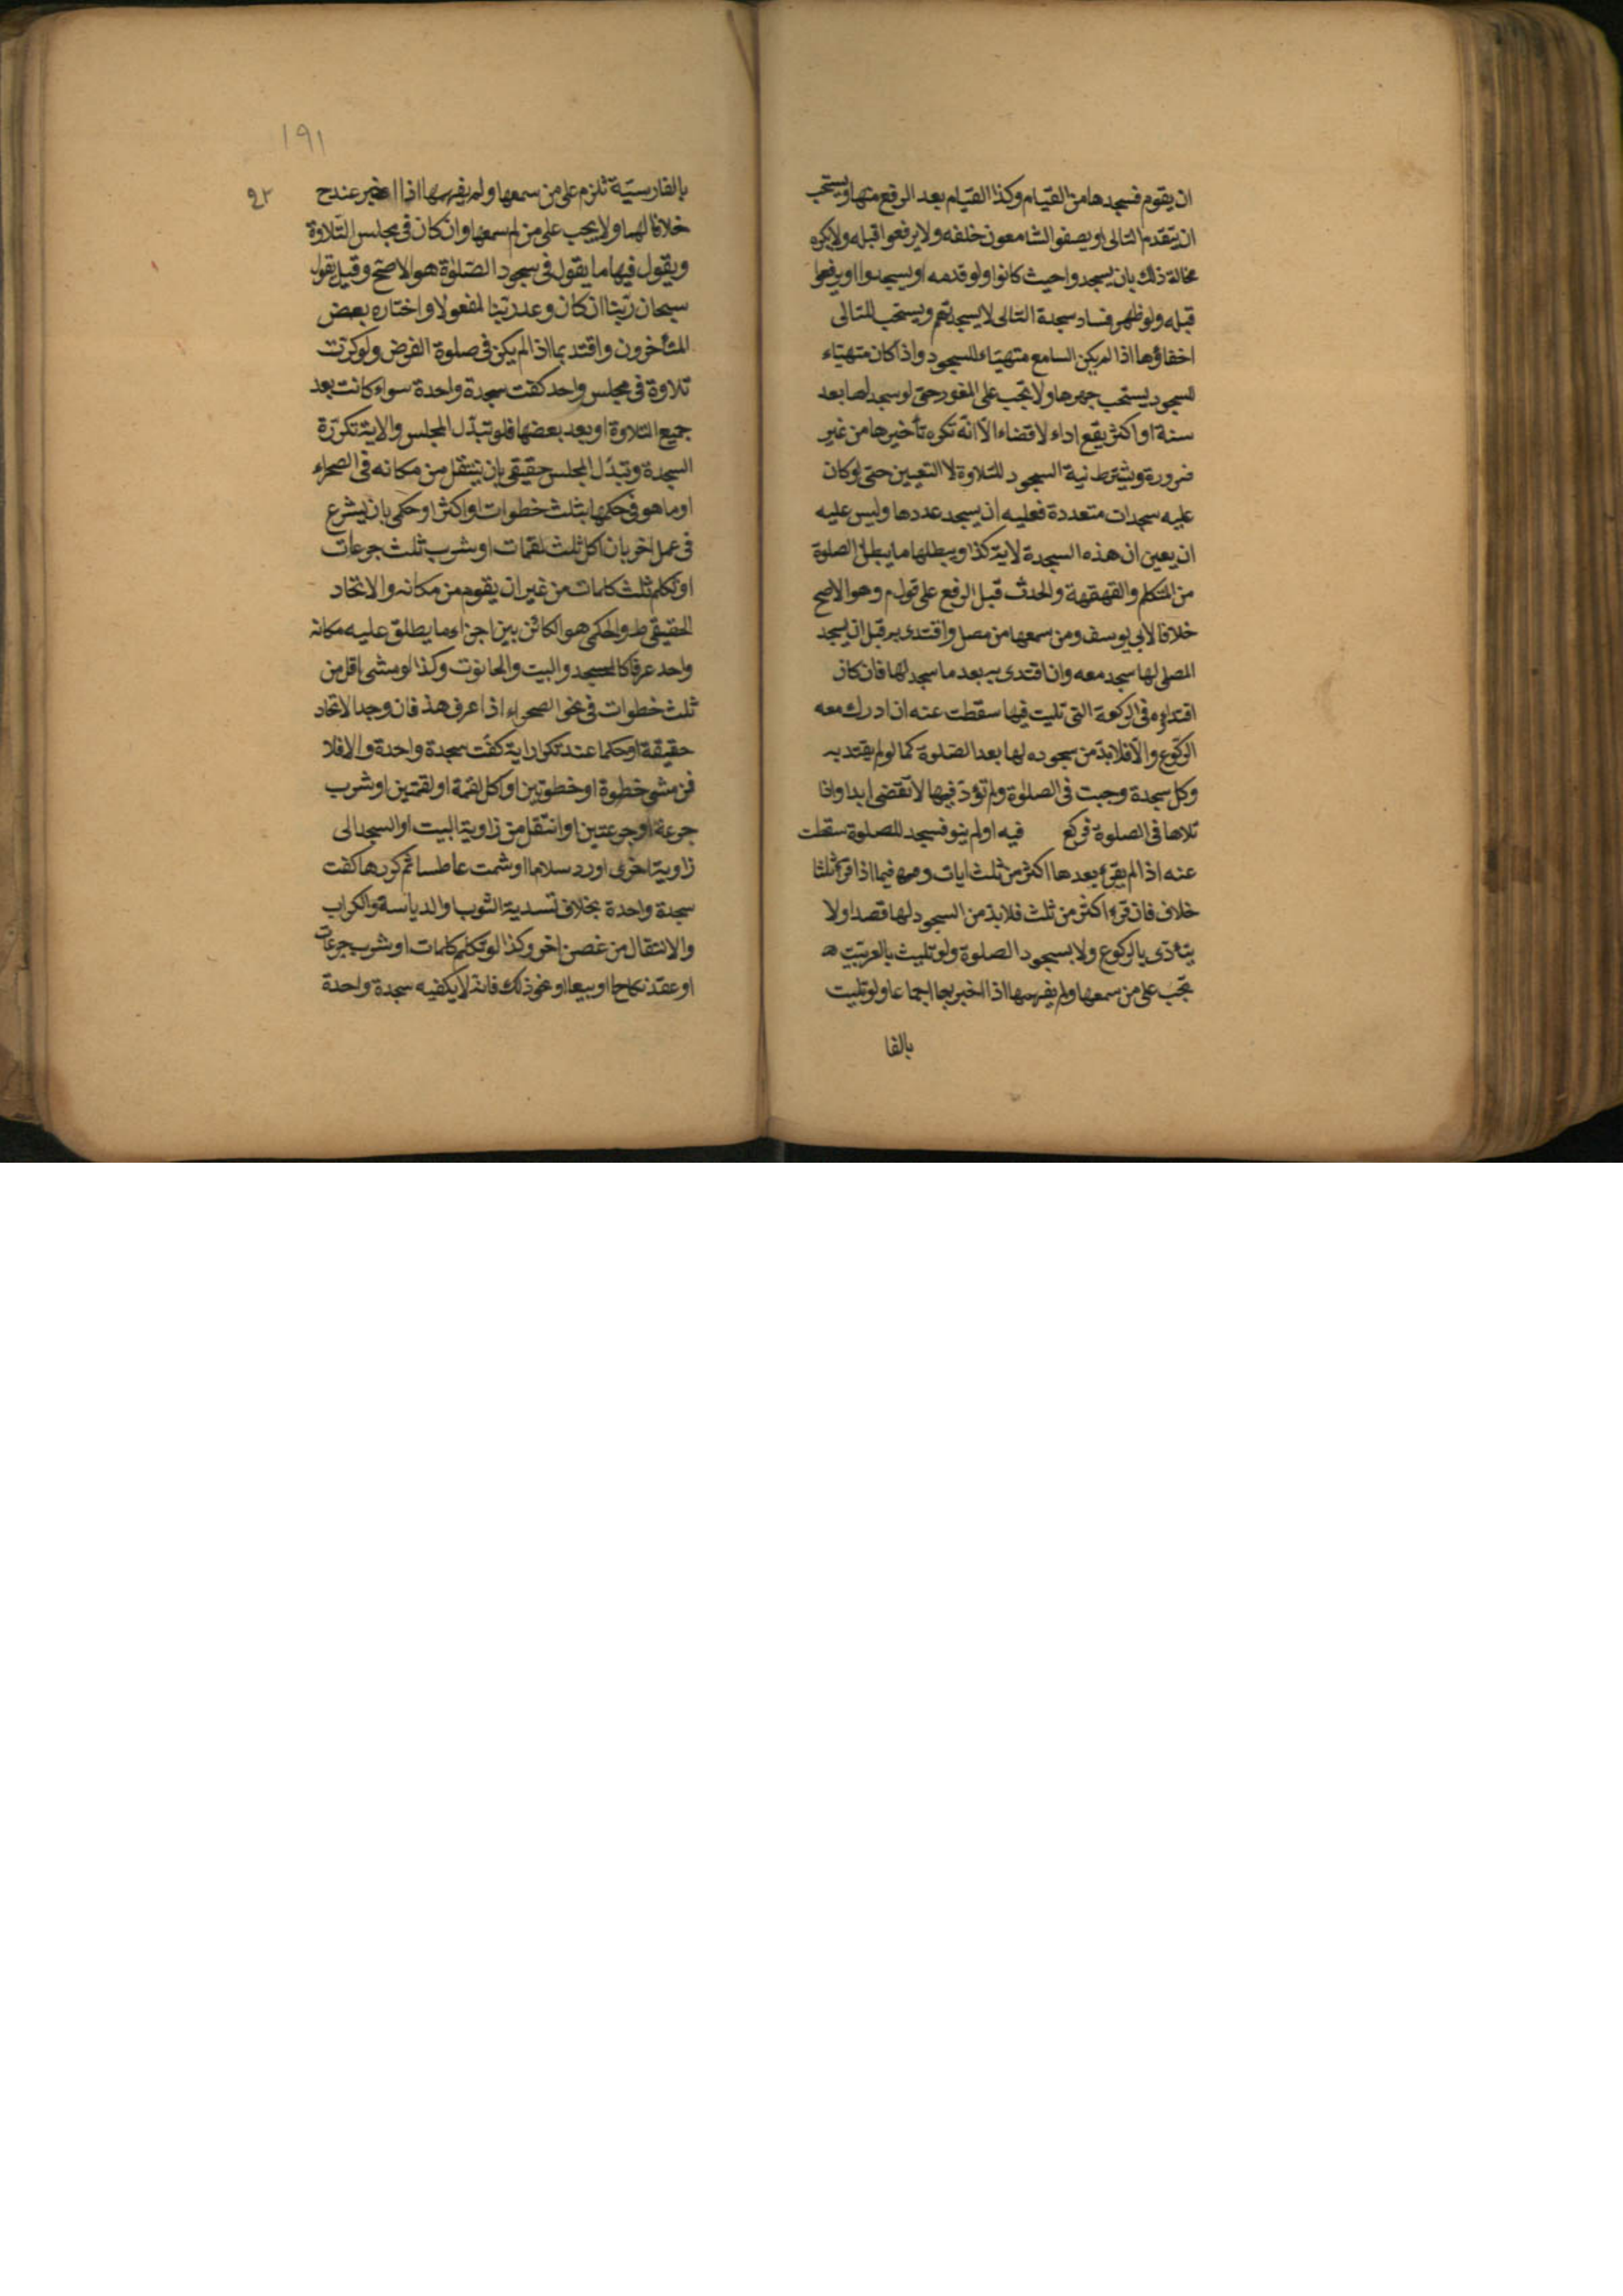 ان يقوم فسجدها من القيام وكذا القيام بعد الرفع منها ويستحب
ان يتقدم التالى ويصفوا السامعون خلفه ولا يرفعوا قبله ولا يكره
مخالفة ذلك بان يسجدوا حيث كانوا ولو قدمه او يسجدوا او يرفعوا
قبله ولو ظهر فساد سجدة التالى لا يسجد ويستحب للتالى
اخفاؤها اذا لم يكن السامع متهيئاء للسجود واذا كان متهيئاء
للسجود يستحب جهرها ولا تجب على الفور حتى لو سجد لها بعد
سنة او اكثر يقع اداء لا قضاء الا انه تكره تأخيرها من غير
ضرورة ويشترط نية السجود للتلاوة لا التعيين حتى لو كان
عليه سجدات متعددة فعليه ان يسجد عددها وليس عليه
ان يعين ان هذه السجدة لاية كذا ويبطلها ما يبطل الصلوة
من التكلم والقهقهة والحدث قبل الرفع على قول م وهو الاصح
خلافا لابي يوسف ومن سمعها من مصل واقتدى به قبل ان يسجد
المصلى لها سجد معه وان اقتدى به بعد ما سجد لها فان كان
اقتداؤه فى الركعة التى تليت فيها سقطت عنه ان ادرك معه
الركوع والا فلا بد من سجوده لها بعد الصلوة كما لو لم يقتد به
وكل سجدة وجبت فى الصلوة ولم تؤد فيها لا تقضى ابدا واذا
تلاها فى الصلوة فركع فيه او لم ينو فسجد للصلوة سقطت
عنه اذا لم يقرء بعدها اكثر من ثلث ايات فيما اذا قرء ثلثا
خلاف فان قرء اكثر من ثلث فلا بد من السجود لها قصدا ولا
يتأدى بالركوع ولا بسجود الصلوة ولو تليت بالعربية
تجب على من سمعها ولم يفهمها اذا اخبر بها اجماعا ولو تليت
بالفا
١٩١
٩٣
بالفارسية تلزم على من سمعها ولم يفهمها اذا اخبر عند ح
خلافا لهما ولا يجب على من لم سمعها وان كان فى مجلس التلاوة
ويقول فيها ما يقول فى سجود الصلوة هو الاصح وقيل يقول
سبحان ربنا ان كان وعد ربنا لمفعولا واختاره بعض
المتأخرون واقتد بما اذا لم يكن فى صلوة الفرض ولو كررت
تلاوة فى مجلس واحد كفت سجدة واحدة سواء كانت بعد
جميع التلاوة او بعد بعضها فلو تبدل المجلس والاية تكررة
السجدة وتبدل المجلس حقيقى بان ينتقل من مكانه فى الصحراء
او ما هو فى حكمها بثلث خطوات او اكثر او حكمى بان يشرع
فى عمل اخر بان اكل ثلث لقمات او شرب ثلث جرعات
او تكلم ثلث كلمات من غير ان يقوم من مكانه والاتحاد
الحقيقى والحكمى هو الكائن بين اجزاء ما يطلق عليه مكانه
واحد عرفا كالمسجد والبيت والحانوت وكذا لو مشى اقل من
ثلث خطوات فى نحو الصحراء اذا عرف هذ فان وجد الاتحاد
حقيقة او حكما عند تكرار اية كفت سجدة واحدة والا فلا
فمن مشى خطوة او خطوتين او اكل لقمة او لقمتين او شرب
جرعة او جرعتين او انتقل من زاوية البيت او المسجد الى
زاوية اخرى او رد سلاما او شمت عاطسا ثم كررها كفت
سجدة واحدة بخلاف تسدية الثوب والدياسة والكراب
والانتقال من غصن اخر وكذا لو تكلم كلمات او شرب جرعات
او عقد نكاحا او بيعا او نحو ذلك فانه لا يكفيه سجدة واحدة